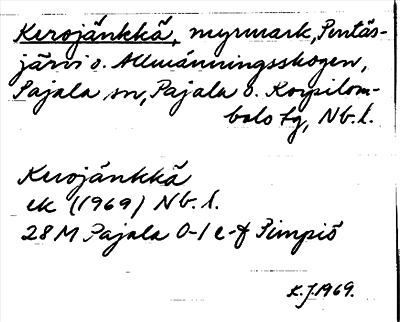 Kerojänkkä, myrmark, Pentäs-
järvi o. Allmänningsskogen,
Pajala sn, Pajala o. Korpilom-
bolo tg, Nb. l.
Kerojänkkä
ek (1969) Nb. l.
28M Pajala 0-1 e-f Pimpiö
K.J. 1969.